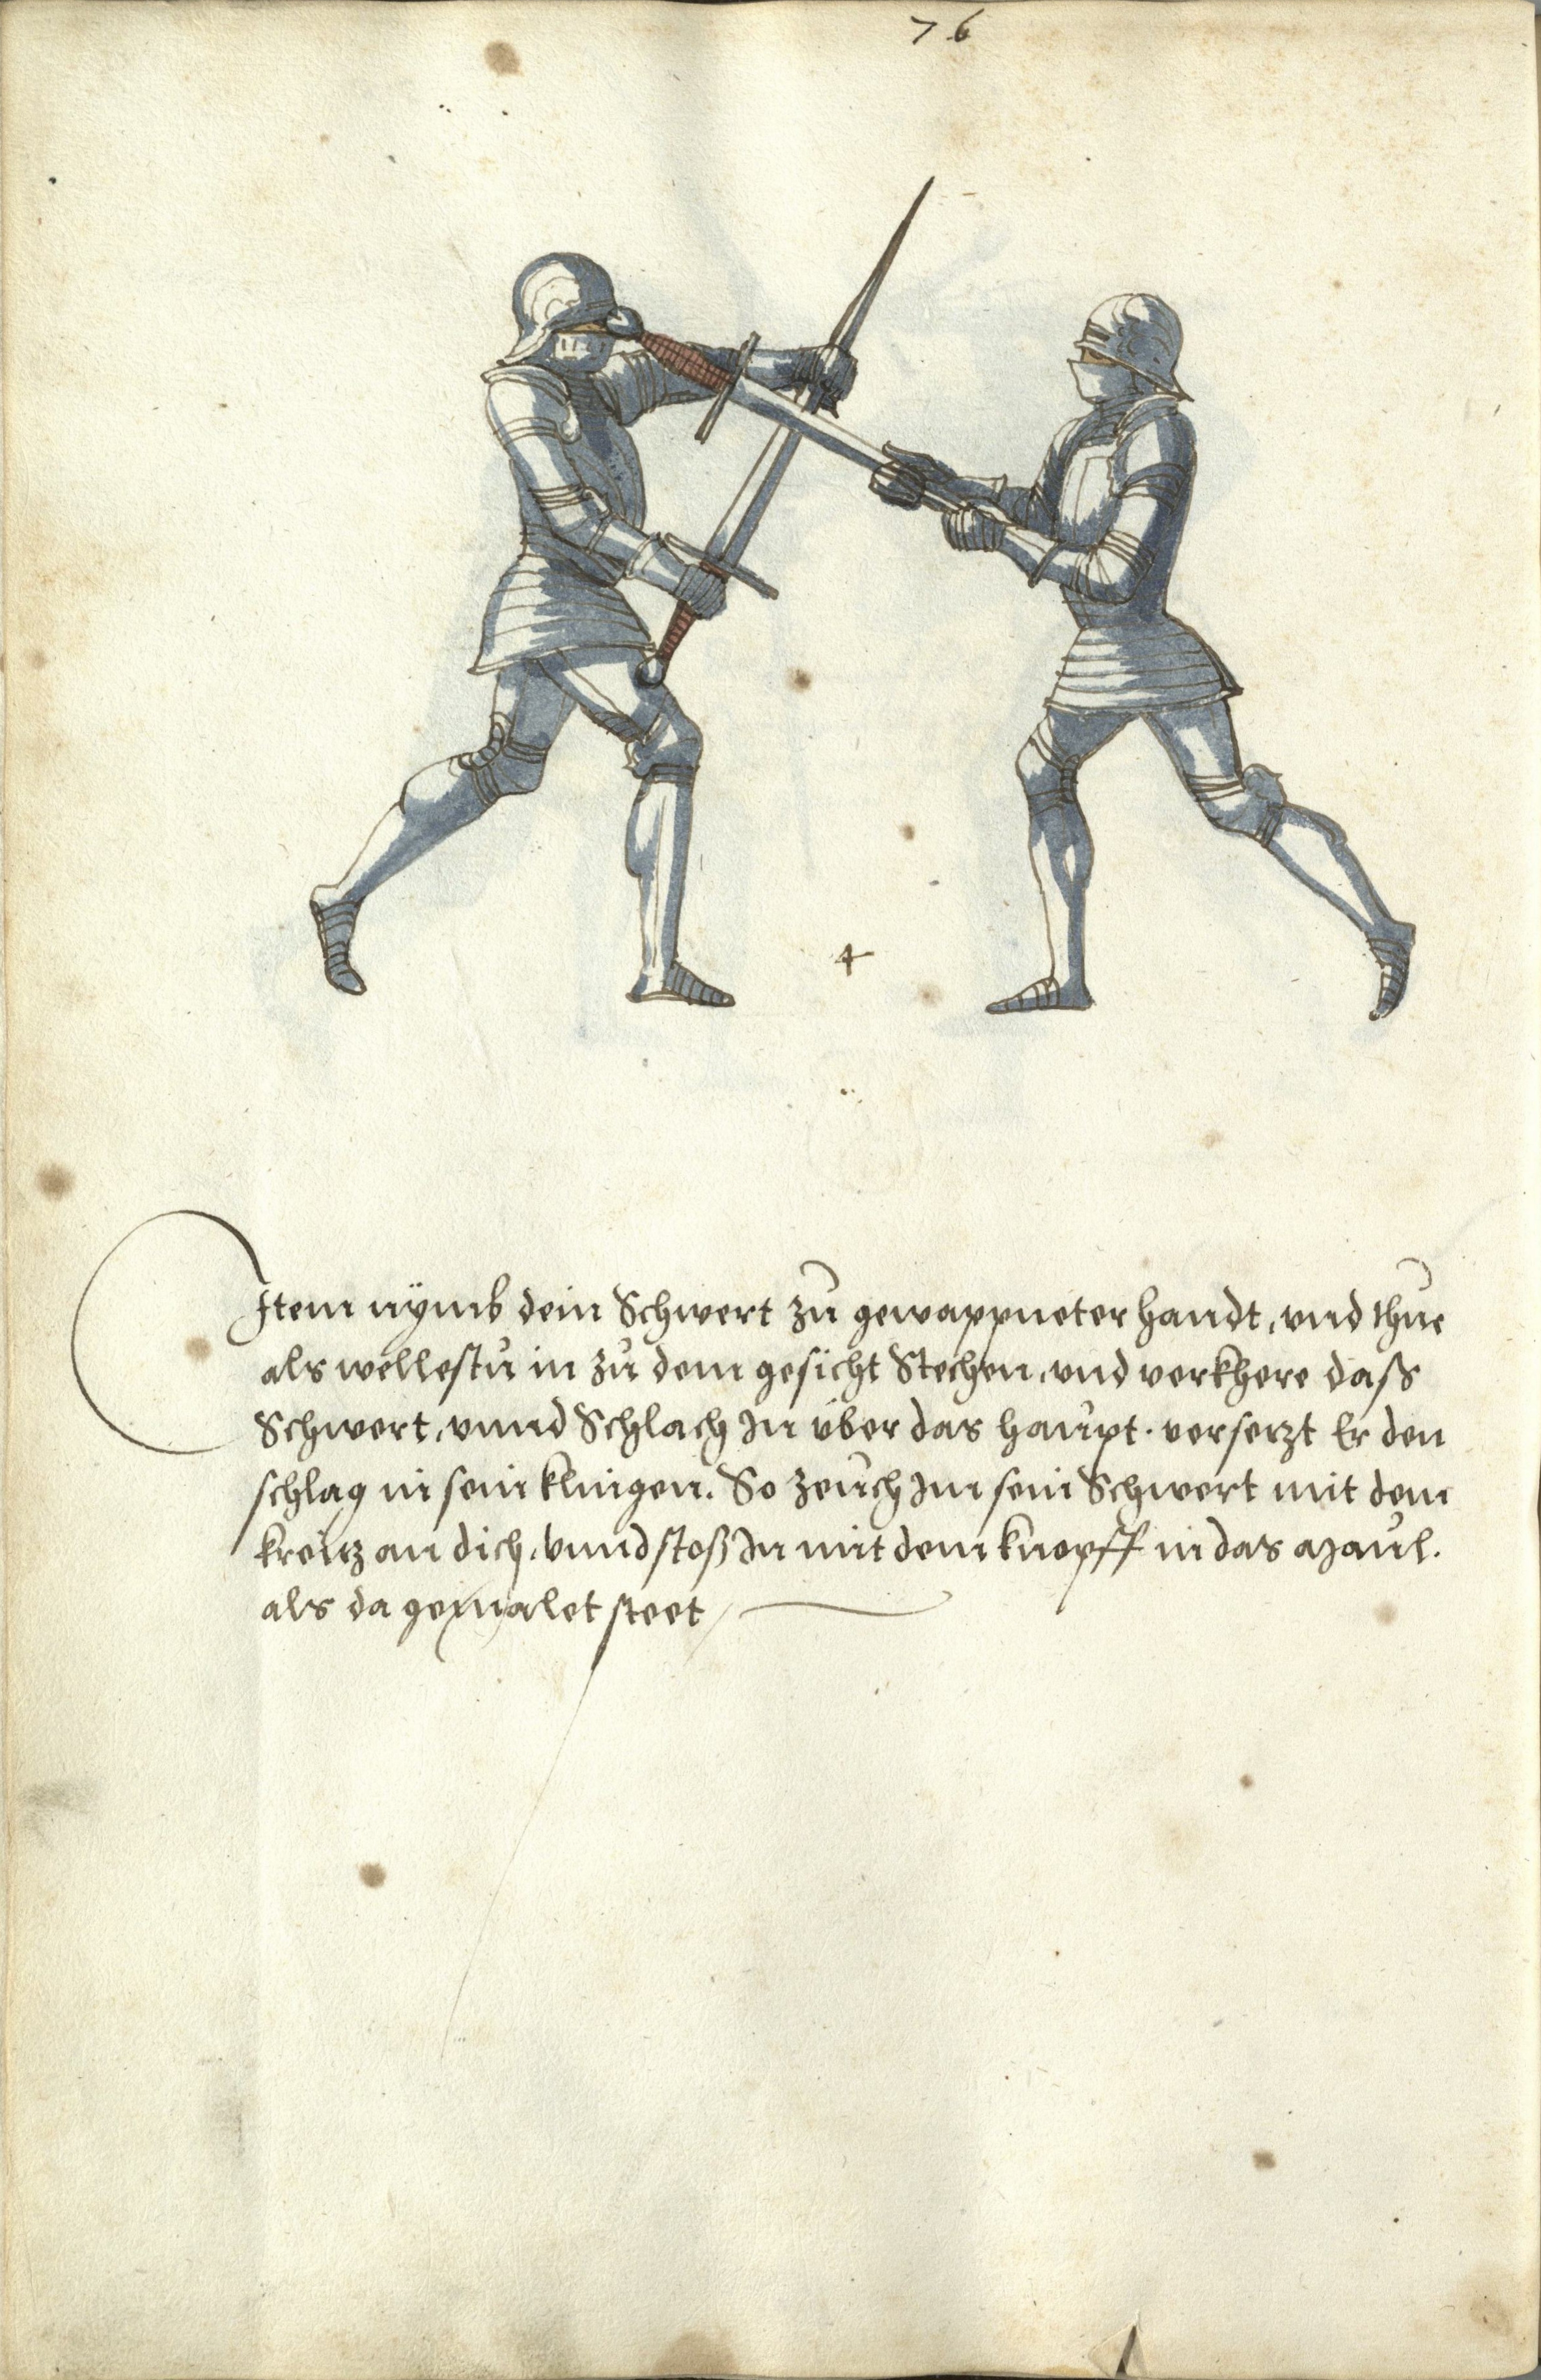 76
4
Item nÿmb dein Schwert zu gewappneter handt, vnd thue
als wellestu in zu dem gesicht Stechen, vnd verkhere daß
Schwert, vnnd Schlach In über das haupt. versetzt Er den
schlag in sein klingen. So zeuch Im sein Schwert mit dem
kreutz an dich, vnnd stoß In mit dem knopff in das Maul.
als da gemalet steet